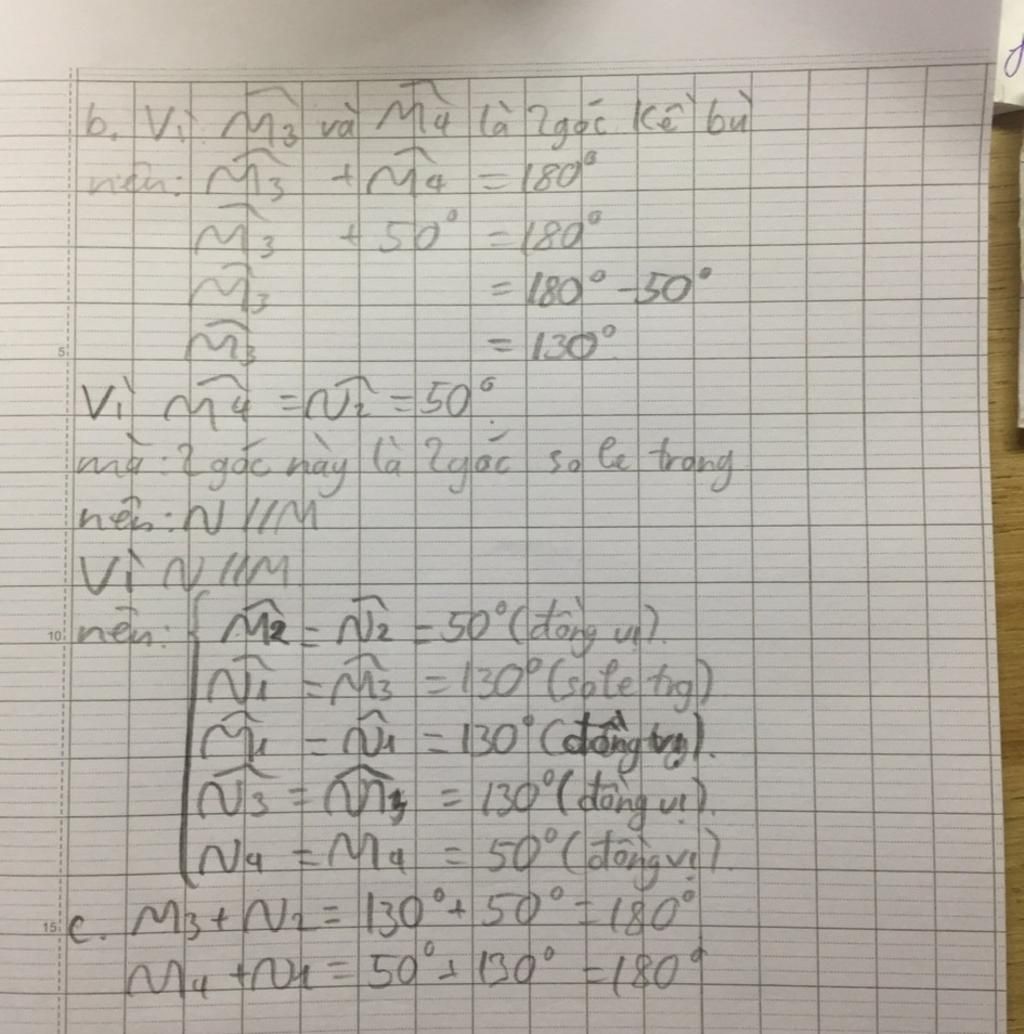 b. Vì M̂3 và M̂4 là 2 góc kề bù
nên: M̂3 + M̂4 = 180°
M̂3 + 50° = 180°
M̂3 = 180° - 50°
M̂3 = 130°
Vì M̂4 = N̂2 = 50°
mà: 2 góc này là 2 góc so le trong
nên: N // M
Vì N // M
nên: M̂2 = N̂2 = 50° (đồng vị).
N̂1 = M̂3 = 130° (so le trg)
M̂1 = N̂1 = 130° (đồng vị).
N̂3 = M̂3 = 130° (đồng vị).
N4 = M4 = 50° (đồng vị).
c. M3 + N2 = 130° + 50° = 180°
M4 + N1 = 50° + 130° = 180°
5
10
15